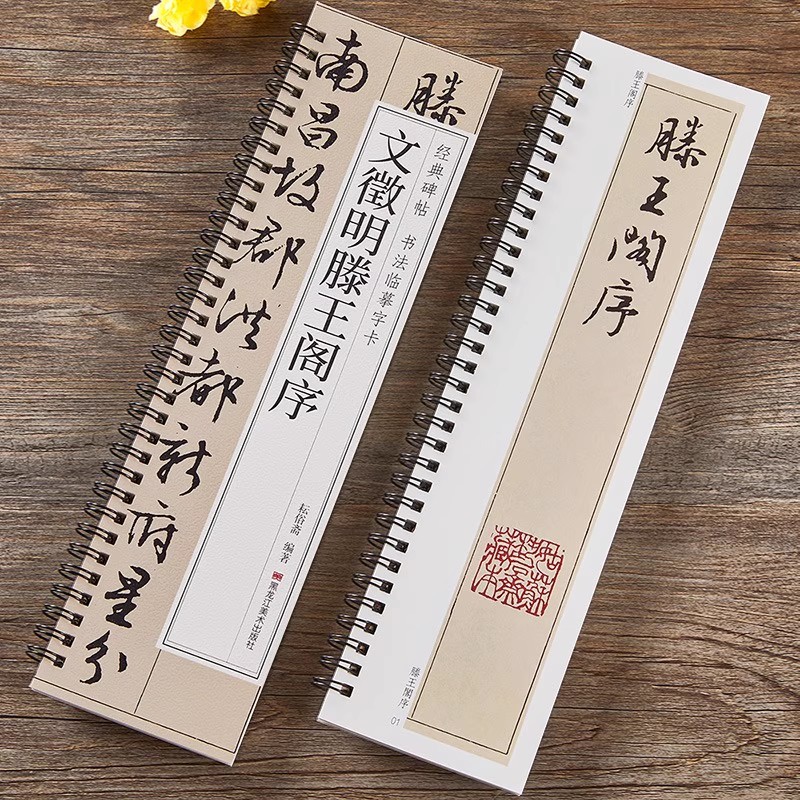 南昌故郡洪都新府星分
滕
经典碑帖 书法临摹字卡
文徵明滕王阁序
耘俗斋 编著
黑龙江美术出版社
滕王阁序
滕王阁序
滕王閣序
01